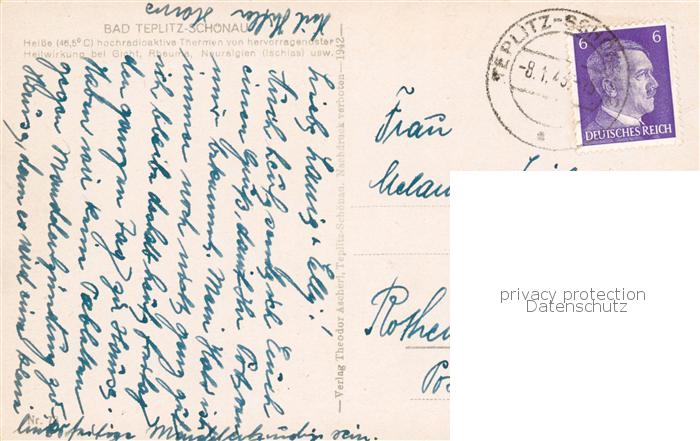 BAD TEPLITZ-SCHÖNAU
Heiße (46,5° C) hochradioaktive Thermen von hervorragendster
Heilwirkung bei Gicht, Rheuma, Neuralgien (Ischias) usw.
Heil Hitler
Liebe &
Auch heute sende ich Euch
einen Gruß, damit Ihr
mir bekommt. Mein Hals ist
immer noch nicht ganz gut
ich bleibe deshalb heute
den ganzen Tag zu Hause.
Haben wir kein Tabletten
gegen Mandelentzündung zu
Haus, denn es wird eine kleine
linksseitige Mandelentzündung sein.
— Verlag Theodor Ascherl, Teplitz-Schönau. Nachdruck verboten—1942—
Nr.
TEPLITZ-SCH
-8.1.43
6 6
DEUTSCHES REICH
Frau
Melan
Rothe
Po
privacy protection
Datenschutz